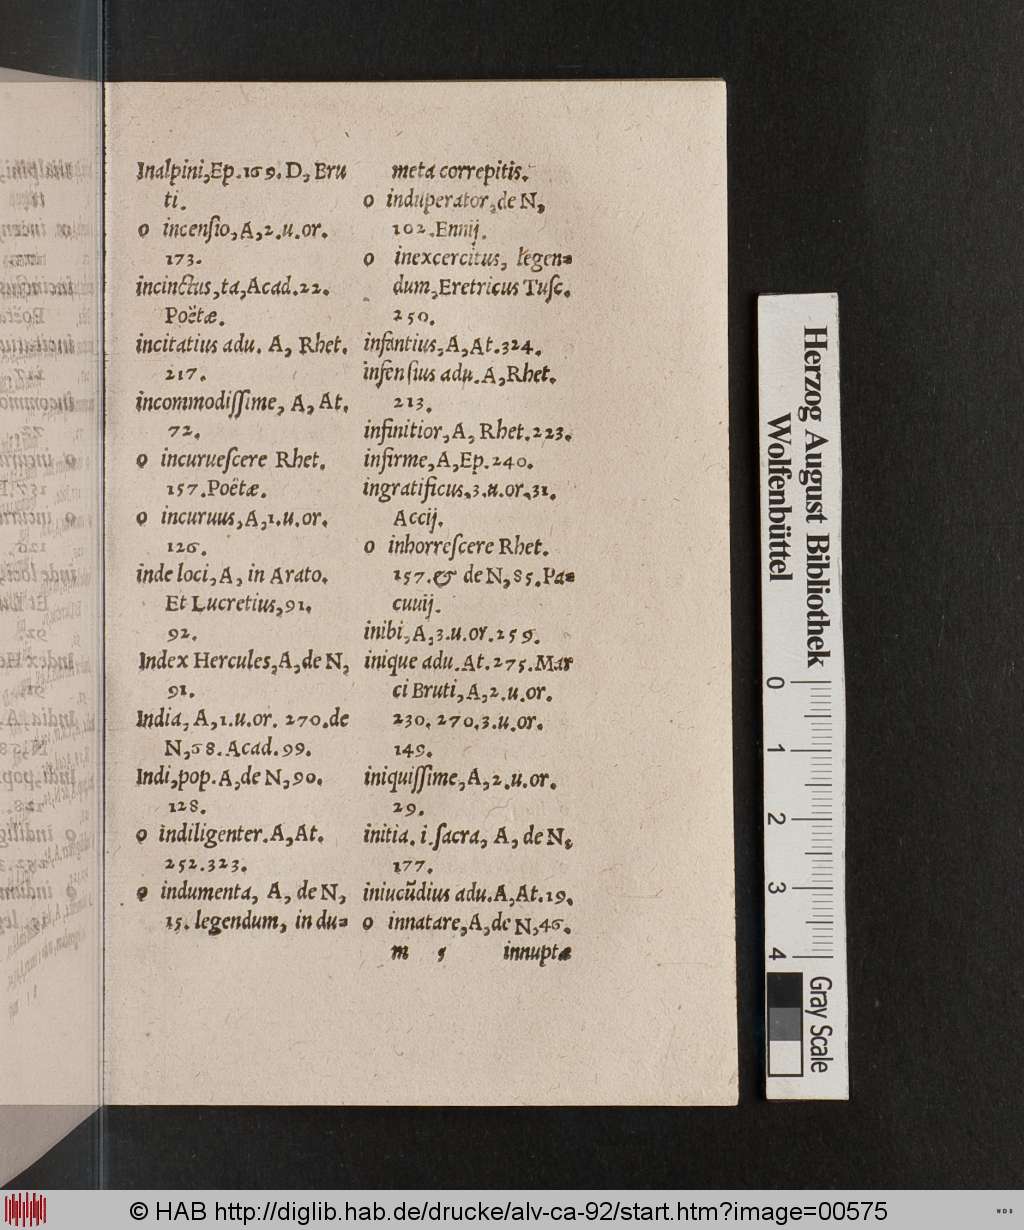 Inalpini,Ep.169.D, Bru
ti.
o incenſio,A,2.u.or.
173.
incinctus,ta,Acad.22.
Poëtæ.
incitatius adu. A, Rhet.
217.
incommodiſſime, A, At.
72.
o incurueſcere Rhet.
157.Poëtæ.
o incuruus,A,1.u.or.
126.
inde loci,A, in Arato.
Et Lucretius,91.
92.
Index Hercules,A,de N,
91.
India, A,1.u.or. 270.de
N,68.Acad.99.
Indi,pop.A,de N,90.
128.
o indiligenter.A,At.
252.323.
o indumenta, A, de N,
15. legendum, in du=
meta correpitis.
o induperator,de N,
102.Ennij.
o inexcercitus, legen=
dum,Eretricus Tuſc.
250.
infantius,A,At.324.
infenſius adu.A,Rhet.
213.
infinitior,A, Rhet.223.
infirme,A,Ep.240.
ingratificus.3.u.or.31.
Accij.
o inhorreſcere Rhet.
157.& de N,85.Pa=
cuuij.
inibi,A,3.u.or.259.
inique adu.At.275.Mar
ci Bruti,A,2.u.or.
230.270.3.u.or.
149.
iniquiſſime,A,2.u.or.
29.
initia.i.ſacra, A, de N,
177.
iniucũdius adu.A,At.19.
o innatare,A,de N,46.
m 5 innuptæ
Herzog August Bibliothek
Wolfenbüttel
0 1 2 3 4
Gray Scale
© HAB http://diglib.hab.de/drucke/alv-ca-92/start.htm?image=00575